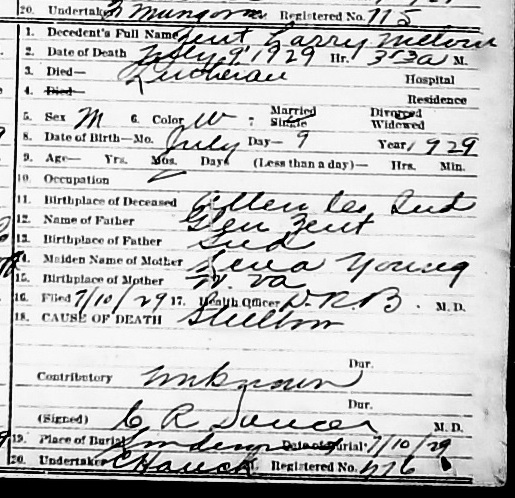 20. Undertaker Mungovan Registered No. 115
1. Decedent's Full Name Zent Larry Melvin
2. Date of Death July 9, 1929 Hr. 3 53 a M.
3. Died— Lutheran Hospital
4. Died— Residence
5. Sex M 6. Color W 7. Married Single Divorced Widowed
8. Date of Birth—Mo. July Day— 9 Year, 1929
9. Age— Yrs. Mos. Days (Less than a day)— Hrs. Min.
10. Occupation
11. Birthplace of Deceased Allen Co Ind
12. Name of Father Glen Zent
13. Birthplace of Father Ind
14. Maiden Name of Mother Lena Young
15. Birthplace of Mother W. Va
16. Filed 7/10/29 17. Health Officer D.R.B. M. D.
18. CAUSE OF DEATH Stillborn
Dur.
Contributory unknown
Dur.
(Signed) C R M. D.
19. Place of Burial Date of Burial 7/10/29
20. Undertaker C Hauck Registered No. 716